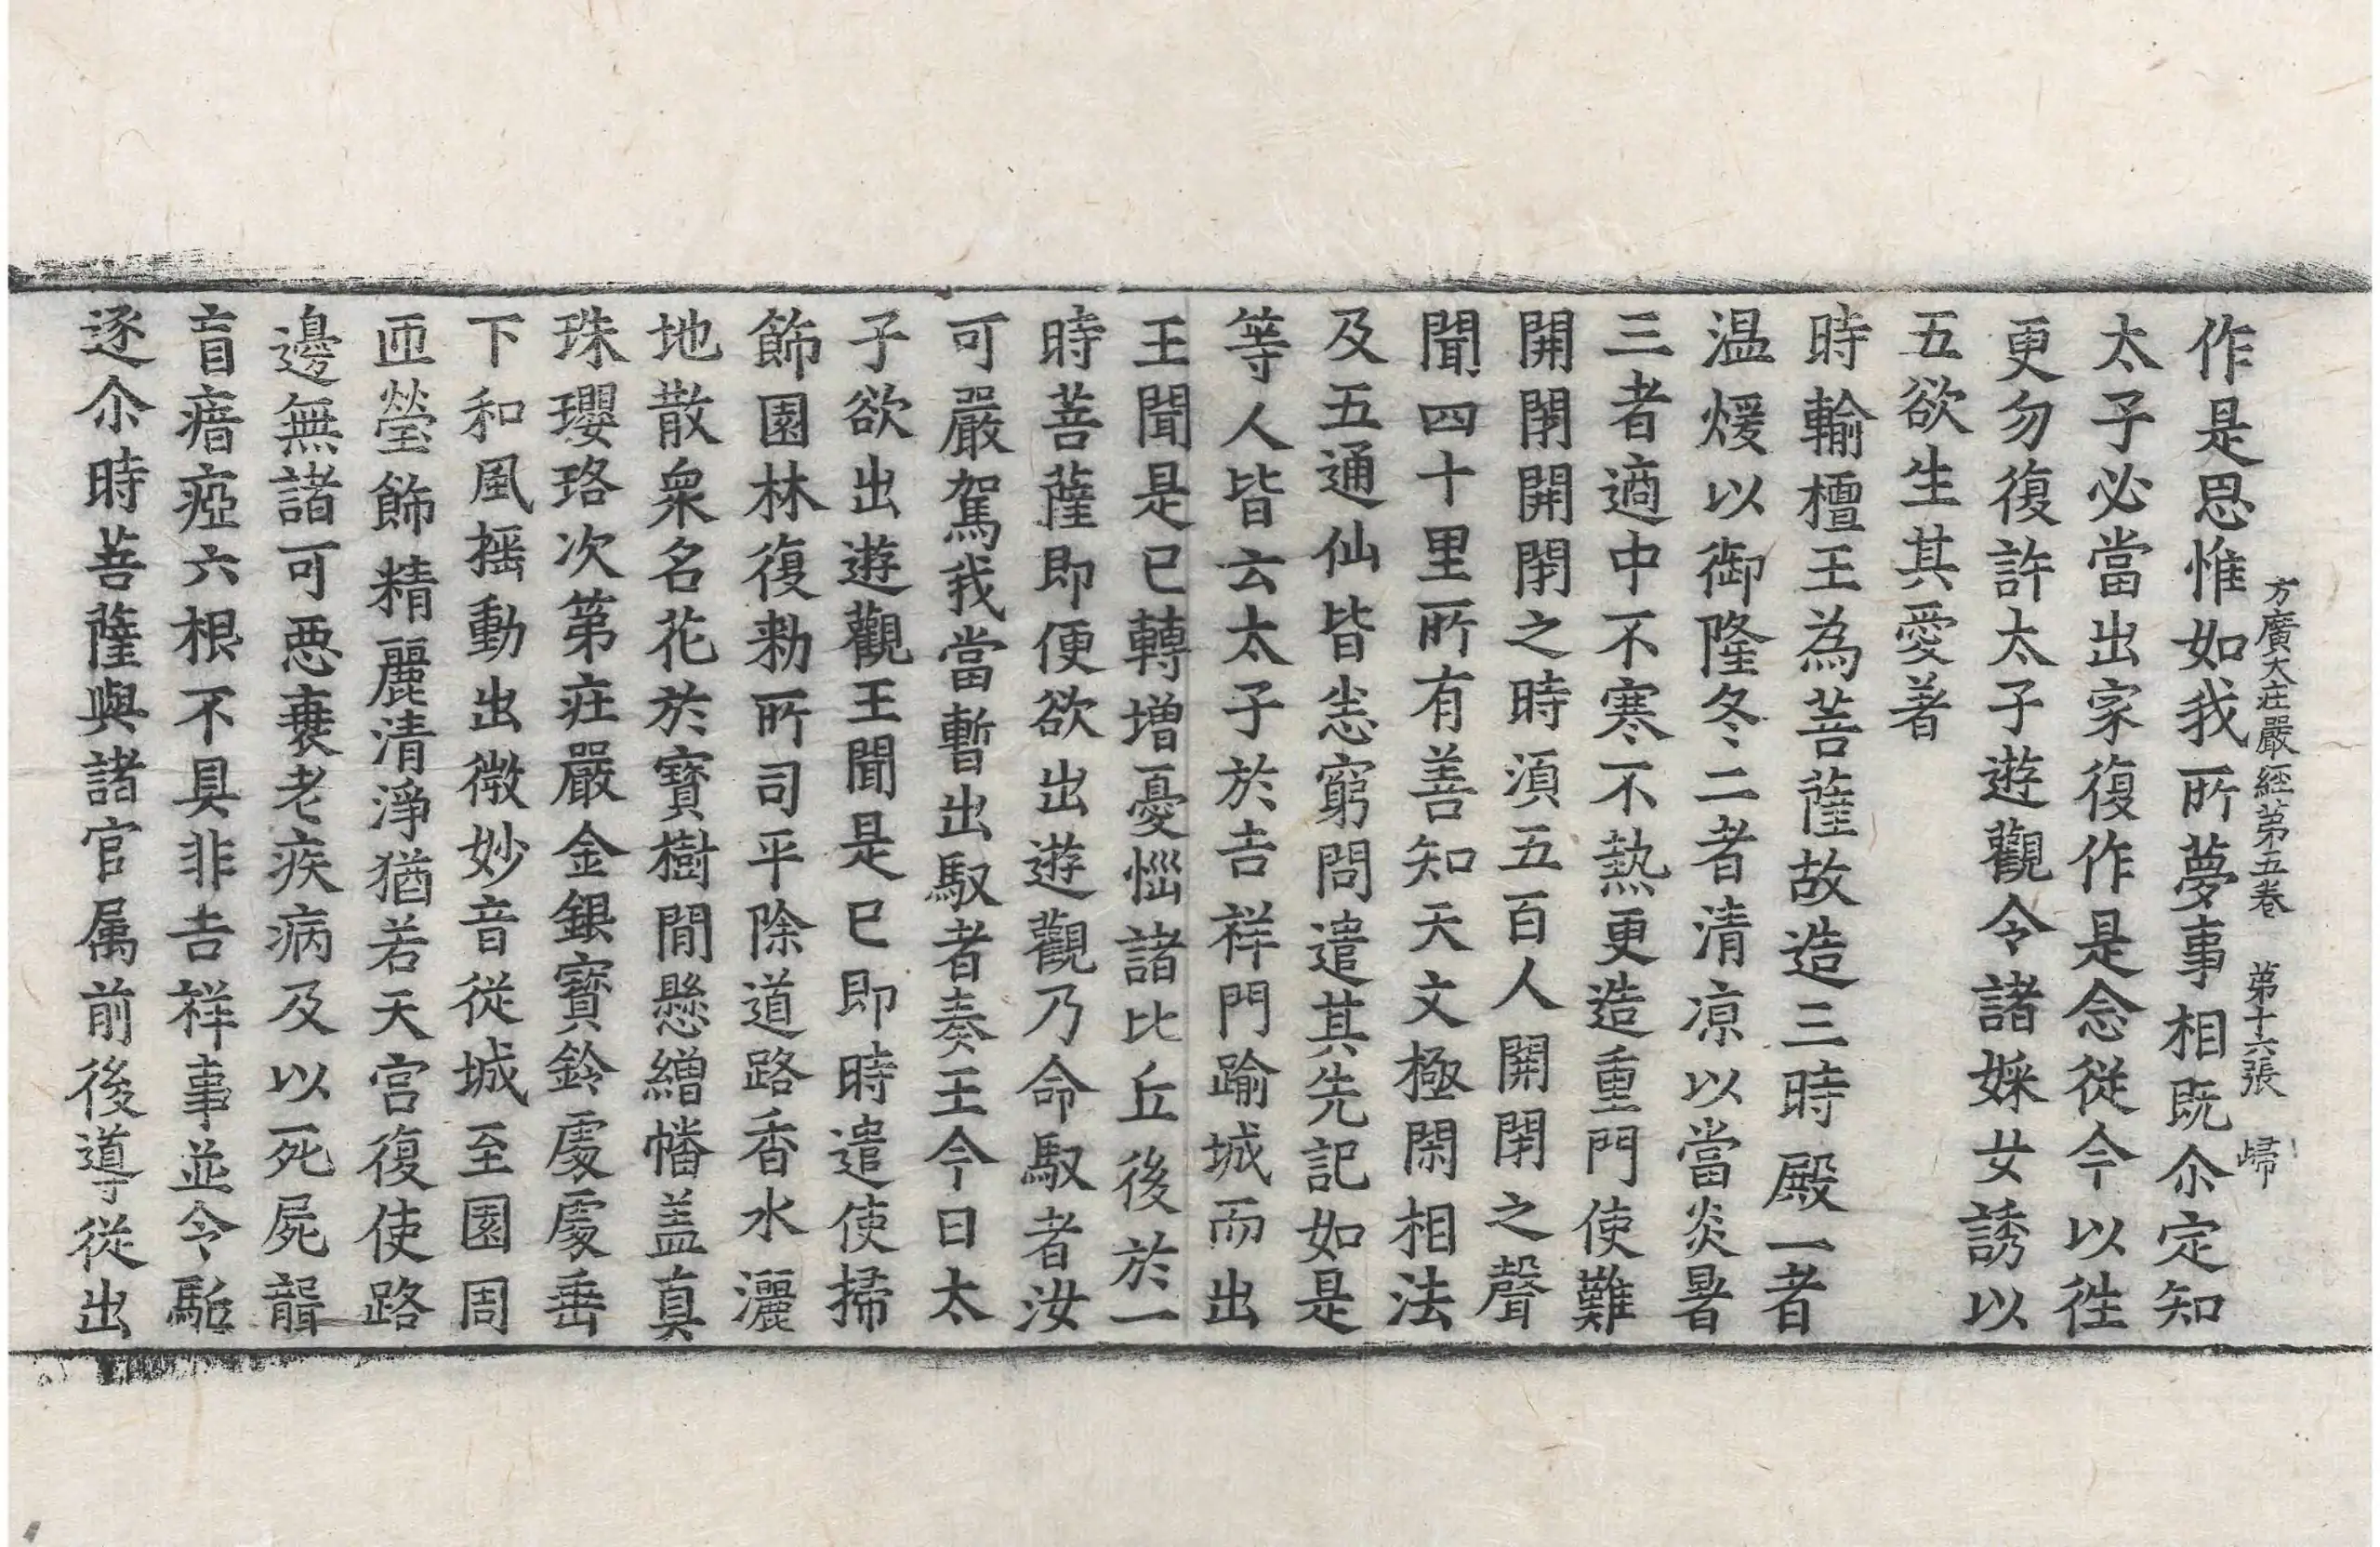 方廣大莊嚴經第五卷 第十六張 歸
作是思惟如我所夢事相既尒定知
太子必當出家復作是念從今以徃
更勿復許太子遊觀令諸婇女誘以
五欲生其愛著
時輸檀王為菩薩故造三時殿一者
温煖以御隆冬二者清涼以當炎暑
三者適中不寒不熱更造重門使難
開閇開閇之時湏五百人開閇之聲
聞四十里所有善知天文極閑相法
及五通仙皆悉窮問遣其先記如是
等人皆云太子於吉祥門踰城而出
王聞是已轉增憂惱諸比丘後於一
時菩薩即便欲出遊觀乃命馭者汝
可嚴駕我當暫出馭者奏王今日太
子欲出遊觀王聞是已即時遣使掃
飾園林復勑所司平除道路香水灑
地散衆名花於寶樹閒懸繒幡盖真
珠瓔珞次第莊嚴金銀寶鈴處處垂
下和風摇動出微妙音從城至園周
匝瑩飾精麗清淨猶若天宮復使路
邊無諸可惡衰老疾病及以死屍聾
盲瘖瘂六根不具非吉祥事並令駈
逐尒時菩薩與諸官属前後導從出